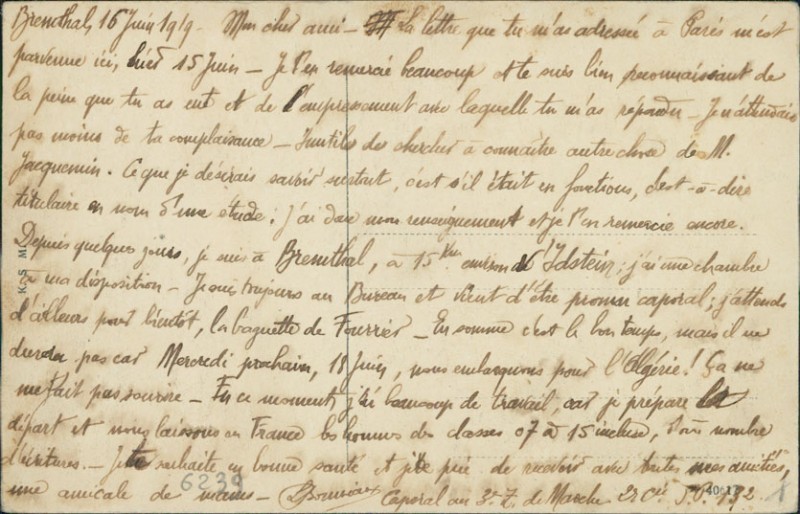 Bremthal, 16 Juin 1919. Mon cher ami - La lettre que tu m'as adressée à Paris m'est
parvenue ici, hier 15 Juin - Je t'en remercie beaucoup et te suis bien reconnaissant de
la peine que tu as eut et de l'empressement avec laquelle tu m'as répondu - Je n'attendais
pas moins de ta complaisance - Inutile de chercher à connaître autre chose de M.
Jacquemin. Ce que je désirais savoir surtout, c'est s'il était en fonctions, c'est-à-dire
titulaire en nom d'une étude ; j'ai donc mon renseignement et je t'en remercie encore.
Depuis quelques jours, je suis à Bremthal, à 15 Km environ d'Idstein ; j'ai une chambre
à ma disposition - Je suis toujours au Bureau et vient d'être promu caporal ; j'attends
d'ailleurs pour bientôt, la baguette de Fourrier - En somme c'est le bon temps, mais il ne
durera pas car Mercredi prochain, 18 Juin, nous embarquons pour l'Algérie ! Ça ne
me fait pas sourire - En ce moment, j'ai beaucoup de travail, car je prépare le
départ et nous laissons en France les hommes des classes 07 à 15 inclus, d'où nombre
d'écritures. - Je te souhaite en bonne santé et je te prie de recevoir avec toutes mes amitiés,
une amicale de mains -
Caporal au 3e Z. de Marche 23 Cie S.P. 192
K. S. M.
6239